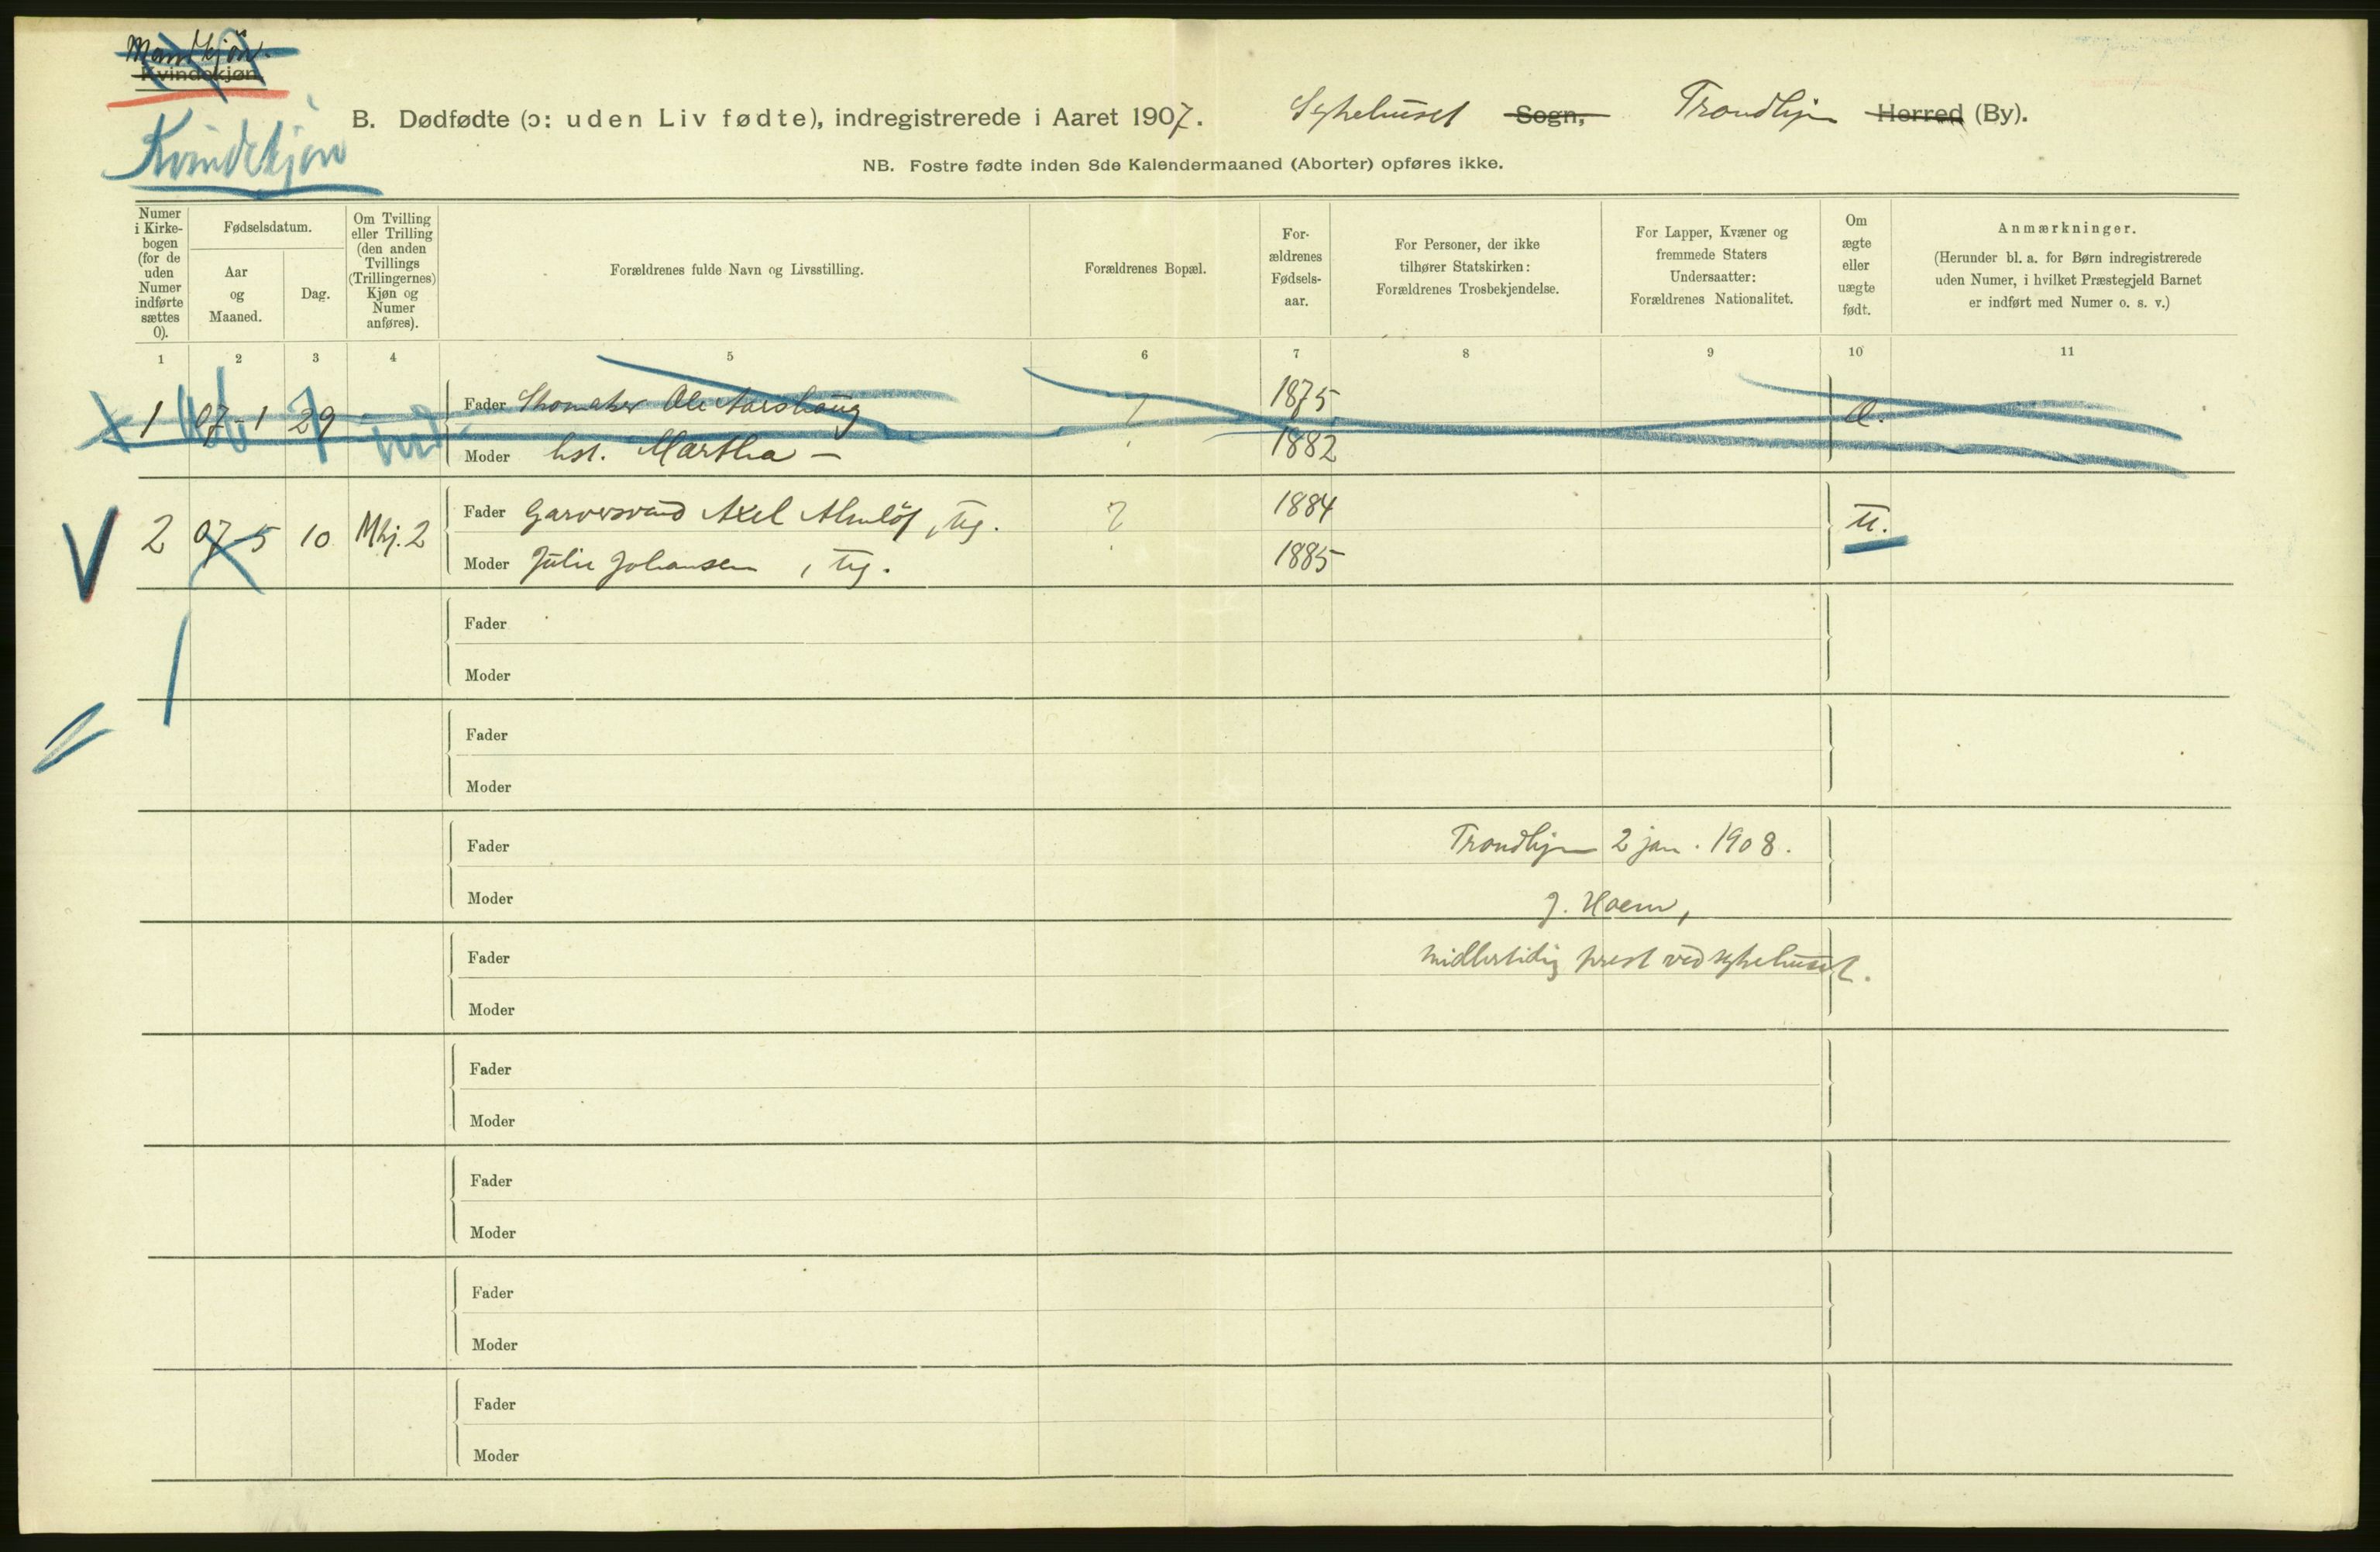 Mandkjön.
Kvindekjøn.
Kvindekjön
B. Dødfødte (ɔ: uden Liv fødte), indregistrerede i Aaret 1907. Sykehuset Sogn, Trondhjem Herred (By).
NB. Fostre fødte inden 8de Kalendermaaned (Aborter) opføres ikke.
Numer i Kirke- bogen (for de uden Numer indførte sættes 0).
Fødselsdatum.
Aar og Maaned.
Dag.
Om Tvilling eller Trilling (den anden Tvillings (Trillingernes) Kjøn og Numer anføres).
Forældrenes fulde Navn og Livsstilling.
Forældrenes Bopæl.
For- ældrenes Fødsels- aar.
For Personer, der ikke tilhører Statskirken: Forældrenes Trosbekjendelse.
For Lapper, Kvæner og fremmede Staters Undersaatter: Forældrenes Nationalitet.
Om ægte eller uægte født.
Anmærkninger.
(Herunder bl. a. for Børn indregistrerede uden Numer, i hvilket Præstegjeld Barnet er indført med Numer o. s. v.)
1 2 3 4 5 6 7 8 9 10 11
1 07-1 29 — Fader Skomaker Ole Aarshaug ? 1875
Moder hst. Martha — 1882
2 07-5 10 Mkj. 2 Fader Garversvend Axel Almlöf, ug. ? 1884 U.
Moder Julie Johansen, ug. 1885
Fader
Moder
Fader
Moder
Fader Trondhjem 2 jan. 1908.
Moder J. Hoem,
Fader midlertidig prest ved sykehuset.
Moder
Fader
Moder
Fader
Moder
Fader
Moder
Fader
Moder